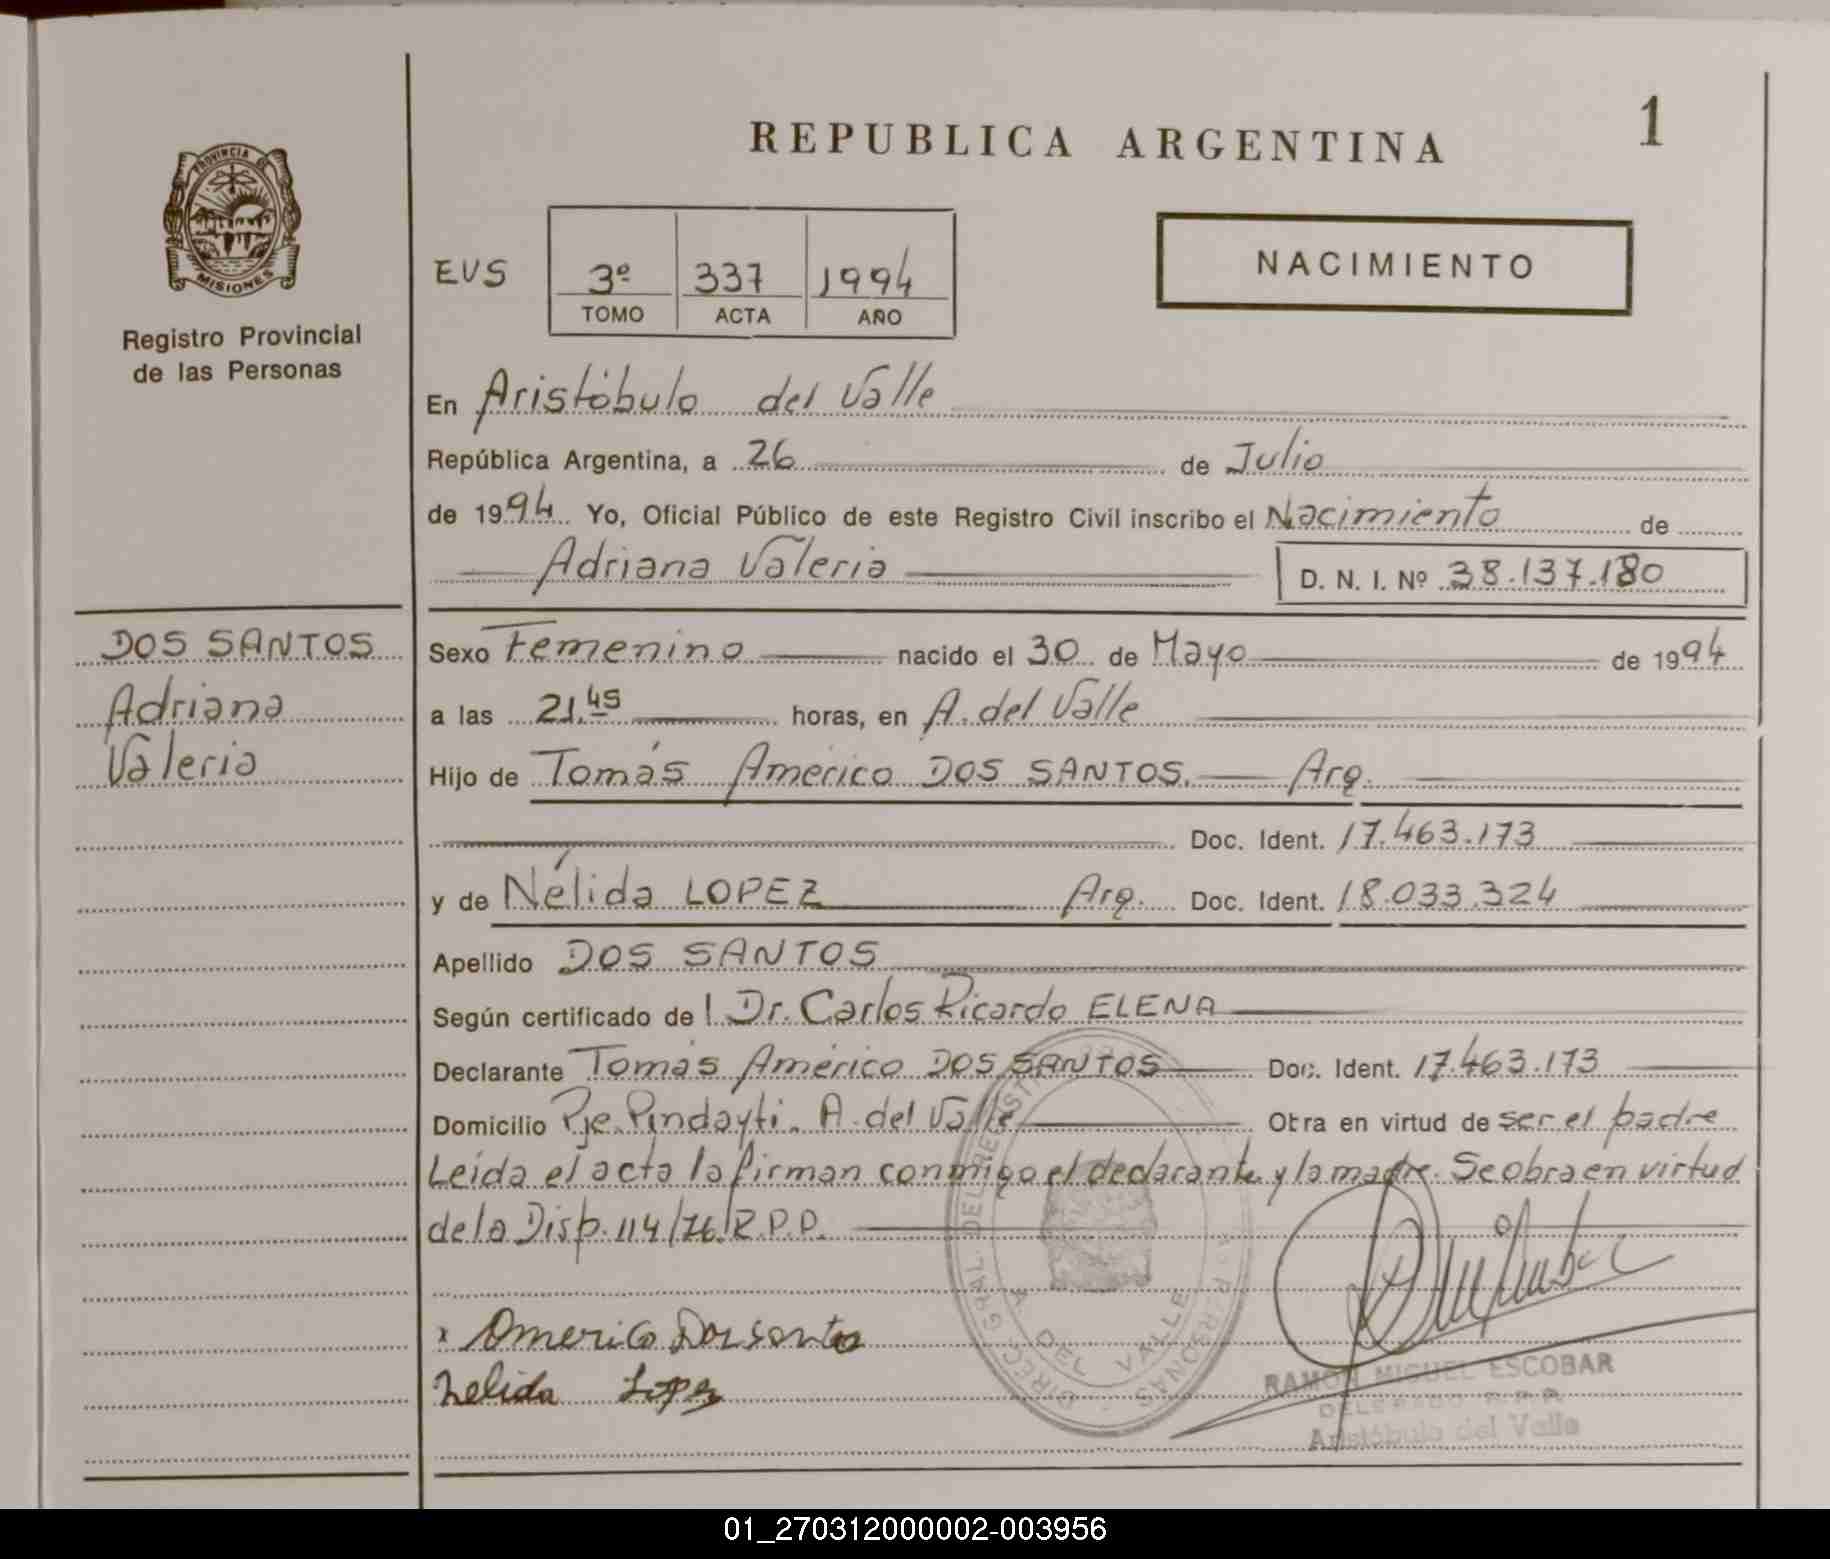 REPUBLICA ARGENTINA
1
PROVINCIA DE
MISIONES
Registro Provincial
de las Personas
EUS
3º 337 1994
TOMO ACTA AÑO
NACIMIENTO
En Aristóbulo del Valle
República Argentina, a 26 de Julio
de 1994 Yo, Oficial Público de este Registro Civil inscribo el Nacimiento de
Adriana Valeria D. N. I. Nº 38.137.180
DOS SANTOS
Adriana
Valeria
Sexo Femenino nacido el 30 de Mayo de 1994
a las 21.45 horas, en A. del Valle
Hijo de Tomás Américo DOS SANTOS. Arg.
Doc. Ident. 17.463.173
y de Nélida LOPEZ Arg. Doc. Ident. 18.033.324
Apellido DOS SANTOS
Según certificado de l Dr. Carlos Ricardo ELENA
Declarante Tomás Américo DOS SANTOS Doc. Ident. 17.463.173
Domicilio Pje. Pindayti. A. del Valle Obra en virtud de ser el padre
Leída el acta la firman conmigo el declarante y la madre. Se obra en virtud
de la Disp. 114/76.R.P.P.
x Americo Dos santos
Nelida Lopez
DEL VALLE
RAMON MIGUEL ESCOBAR
DELEGADO R.P.P.
Aristóbulo del Valle
01_270312000002-003956